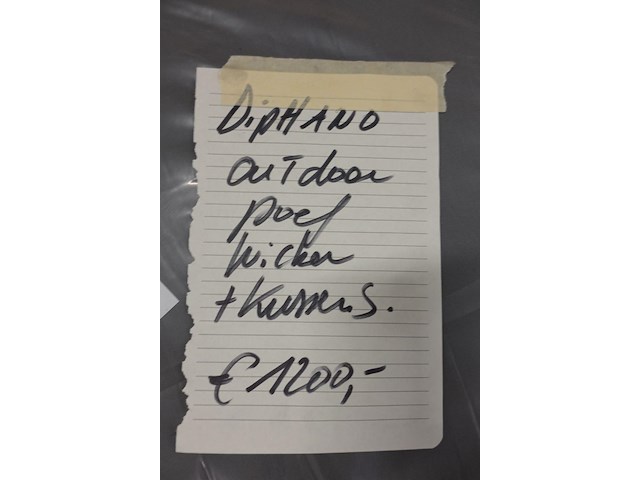 DipHANO
outdoor
poef
wicker
+ Kussens.
€ 1200,-